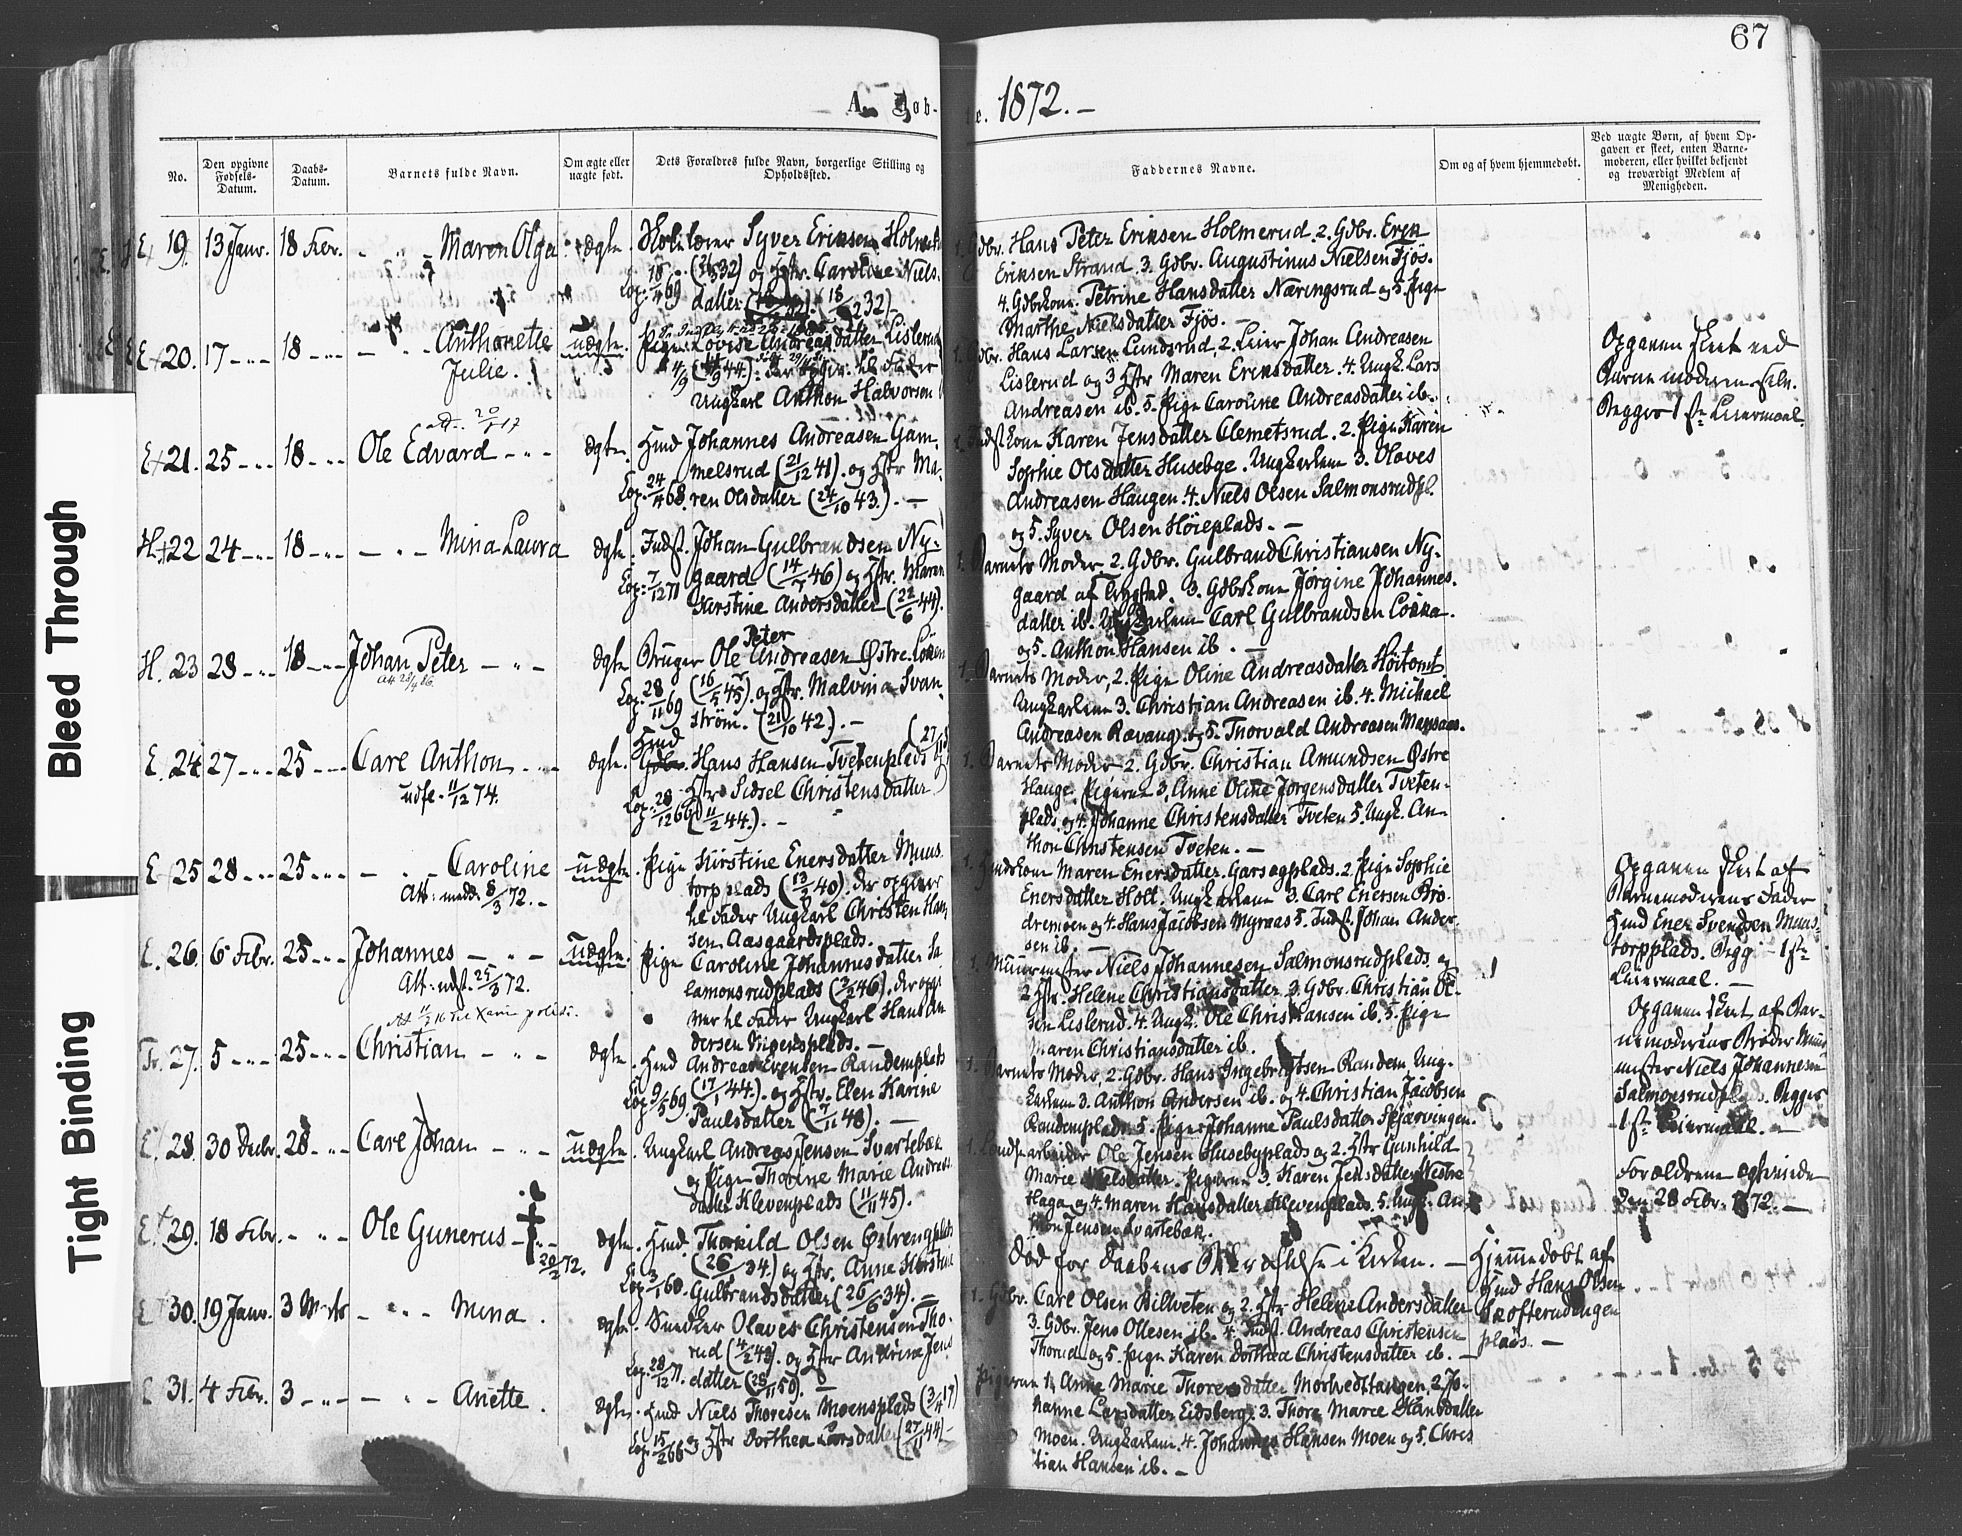 67
A. Døb-
e. 1872. —
No.
Den opgivne Fødsels-Datum.
Daabs-Datum.
Barnets fulde Navn.
Om ægte eller uægte født.
Dets Forældres fulde Navn, borgerlige Stilling og Opholdssted.
Faddernes Navne.
Om og af hvem hjemmedøbt.
Ved uægte Børn, af hvem Opgaven er skeet, enten Barnemoderen, eller hvilket bekjendt og troværdigt Medlem af Menigheden.
Bleed Through
Tight Binding
19. 13 Janr. 18 Febr. Maren Olga ægte
Syver Eriksen
og Hstr. Caroline Niels-
datter
1. Gdbr. Hans Peter Eriksen Holmerud. 2. Gdbr.
Eriksen Strand. 3. Gdbr. Augustinus Nielsen Fjös.
4. Gdbrkone Petrine Hansdatter Næringsrud og 5. Pige
Marthe Nielsdatter Fjös. —
20. 17 18 Anthonette uægte.
Julie.
Pige Lovise Andreasdatter Lislerud
Ungkarl Anthon Halvorsen
Gdbr. Hans Larsen Lundsrud, 2. Leier Johan Andreasen
Lislerud og 3 Hstr Maren Eriksdatter. 4. Ungk. Lars
Andreasen ib. 5. Pige Caroline Andreasdatter ib.
Opgaven skeet ved
Barnemoderen selv.
Begges 1ste Leiermaal.
21. 25 18 Ole Edvard ægte.
Hmd Johannes Andreasen Gam-
melsrud (21/12 41). og Hstr Ma-
ren Olsdatter (24/10 43.). —
kone Karen Jensdatter Clemetsrud. 2. Pige Karen
Sophie Olsdatter Husebye. Ungkarlene 3. Olaves
Andreasen Haugen. 4. Niels Olsen Salmonsrudpl.
og 5. Syver Olsen Höieplads. —
22 24 18 Mina Laura ægte.
Indst. Johan Gulbrandsen Ny-
gaard (14/ 46) og Hstr. Maren
Kirstine Andersdatter (22/6 44).
1. Barnets Moder. 2. Gdbr. Gulbrand Christiansen Ny-
gaard af 3. Gdbrkone Jörgine Johannes-
datter ib. Ungkarlene Carl Gulbrandsen
og 5. Anthon Hansen ib. —
H. 23 28 18 Johan Peter ægte
Bruger Ole Peter Andreasen Østre
og Hstr. Malvina Svan-
ström. (21/10 42). —
1. Barnets Moder, 2. Pige Oline Andreasdatter Höitomt.
Ungkarlene 3. Christian Andreasen ib. 4. Michael
Andreasen og 5. Thorvald Andreasen
E. 24 27 25 Carl Anthon ægte.
udfl. 11/12 74.
Hmd
Hans Hansen Tvetenplads
Hstr Sidsel Christensdatter
(11/2 44.). —
1. Barnets Moder 2. Gdbr. Christian Amundsen Østre
Hauge. Pigerne 3. Anne Oline Jörgensdatter Tveten-
plads og 4. Johanne Christensdatter Tveten 5. Ungk. An-
thon Christensen Tveten. —
E. 25 28 25 Caroline uægte.
Att: medd: 8/3 72. —
Pige Kirstine Enersdatter Muus-
torpplads (13/9 40). der opgiver
til Fader Ungkarl Christen Han-
sen Aasgaardsplads.
Maren Enersdatter 2. Pige Sophie
Enersdatter Holt. Ungkarlene 3. Carl Enersen Bro-
og 4. Hans Jacobsen Myraas 5. Indst. Johan Ander-
sen ib. —
Opgaven skeet af
Barnemoderens Fader
Hmd Ener Svendsen Muus-
torpplads. Begg. 1ste
Leiermaal. —
E. 26. 6 Febr. 25 Johannes uægte.
Att: udst. 25/3 72.
Pige Caroline Johannesdatter Sa-
lamonsrudplads (3/2 46). der opgi-
ver til Fader Ungkarl Hans An-
dersen
1. Muurmester Niels Johannesen Salmonsrudplads og
2. Hstr. Helene Christiansdatter 3. Gdbr. Christian Ol-
sen Lislerud. 4. Ungk. Ole Christiansen ib. 5. Pige
Maren Christiansdatter ib.
Opgaven skeet af Bar-
nemoderens Broder Muur-
mester Niels Johannesen
Salmonsrudplads. Begges
1ste Leiermaal. —
27. 5 25 Christian ægte.
Hmd Andreas Evensen Randemplads
(17/1 44.). og Hstr. Elen Karine
Paulsdatter (7/11 48). —
1. Barnets Moder, 2. Gdbr. Hans Ingebrigtsen Randem, Ung-
karlene 3. Anthon Andersen ib. og 4. Christian Jacobsen
Randemplads. 5. Pige Johanne Paulsdatter Skjærvingen.
28. 30 Decbr. 28 Carl Johan uægte.
Ungkarl Andreas Jensen Svartebæk
og Pige Thorine Marie Andreas-
datter Klevenplads (11/11 45).
Ole Jensen Husebyplads og 2. Hstr Gunhild
Marie Nielsdatter. Pigerne 3. Karen Jensdatter Vestre
Haga og 4. Maren Hansdatter Klevenplads. 5. Ungk. An-
thon Jensen Svartebæk.
Forældrene ægteviede
den 28 Febr. 1872. —
29. 18 Febr. Ole Gunerus ægte.
20/2 72.
Hmd Thorkild Olsen
og Hstr. Anne Kirstine
Gulbrandsdatter (26/6 34). —
Död för Daabens i Kirken. —
Hjemmedöbt af
Hmd Hans Olsen
plads. —
30. 19 Janr. 3 Marts Mina. ægte.
Snedker Olaves Christensen Tho-
rud og Hstr Andrine Jens-
datter
1. Gdbr. Carl Olsen Billveten og 2. Hstr Helene Andersdatter
3. Gdbr. Jens Ollesen ib. 4. Indst. Andreas Christensen
Thorud og 5. Pige Karen Dorthea Christensdatter ib. —
31. 4 Febr. 3 Anette. ægte.
Hmd Niels Thoresen Moensplads (3/4 17)
og Hstr Dorthea Larsdatter (27/11 44) —
Pigerne 1. Anne Marie Thoresdatter 2. Jo-
hanne Larsdatter Eidsberg. 3. Thora Marie Hansdatter
Moen. Ungkarlene 4. Johannes Hansen Moen og 5. Chris
tian Hansen ib. —